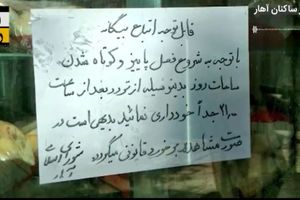 ساکنان آهار
قابل توجه اتباع بیگانه
با توجه به شروع فصل پاییز و کوتاه شدن
ساعات روز بدینوسیله از تردد بعد از ساعت
۲۱:۰۰ جداً خودداری نمائید بدیهی است در
صورت مشاهده برخورد قانونی میگردد
شورای اسلامی